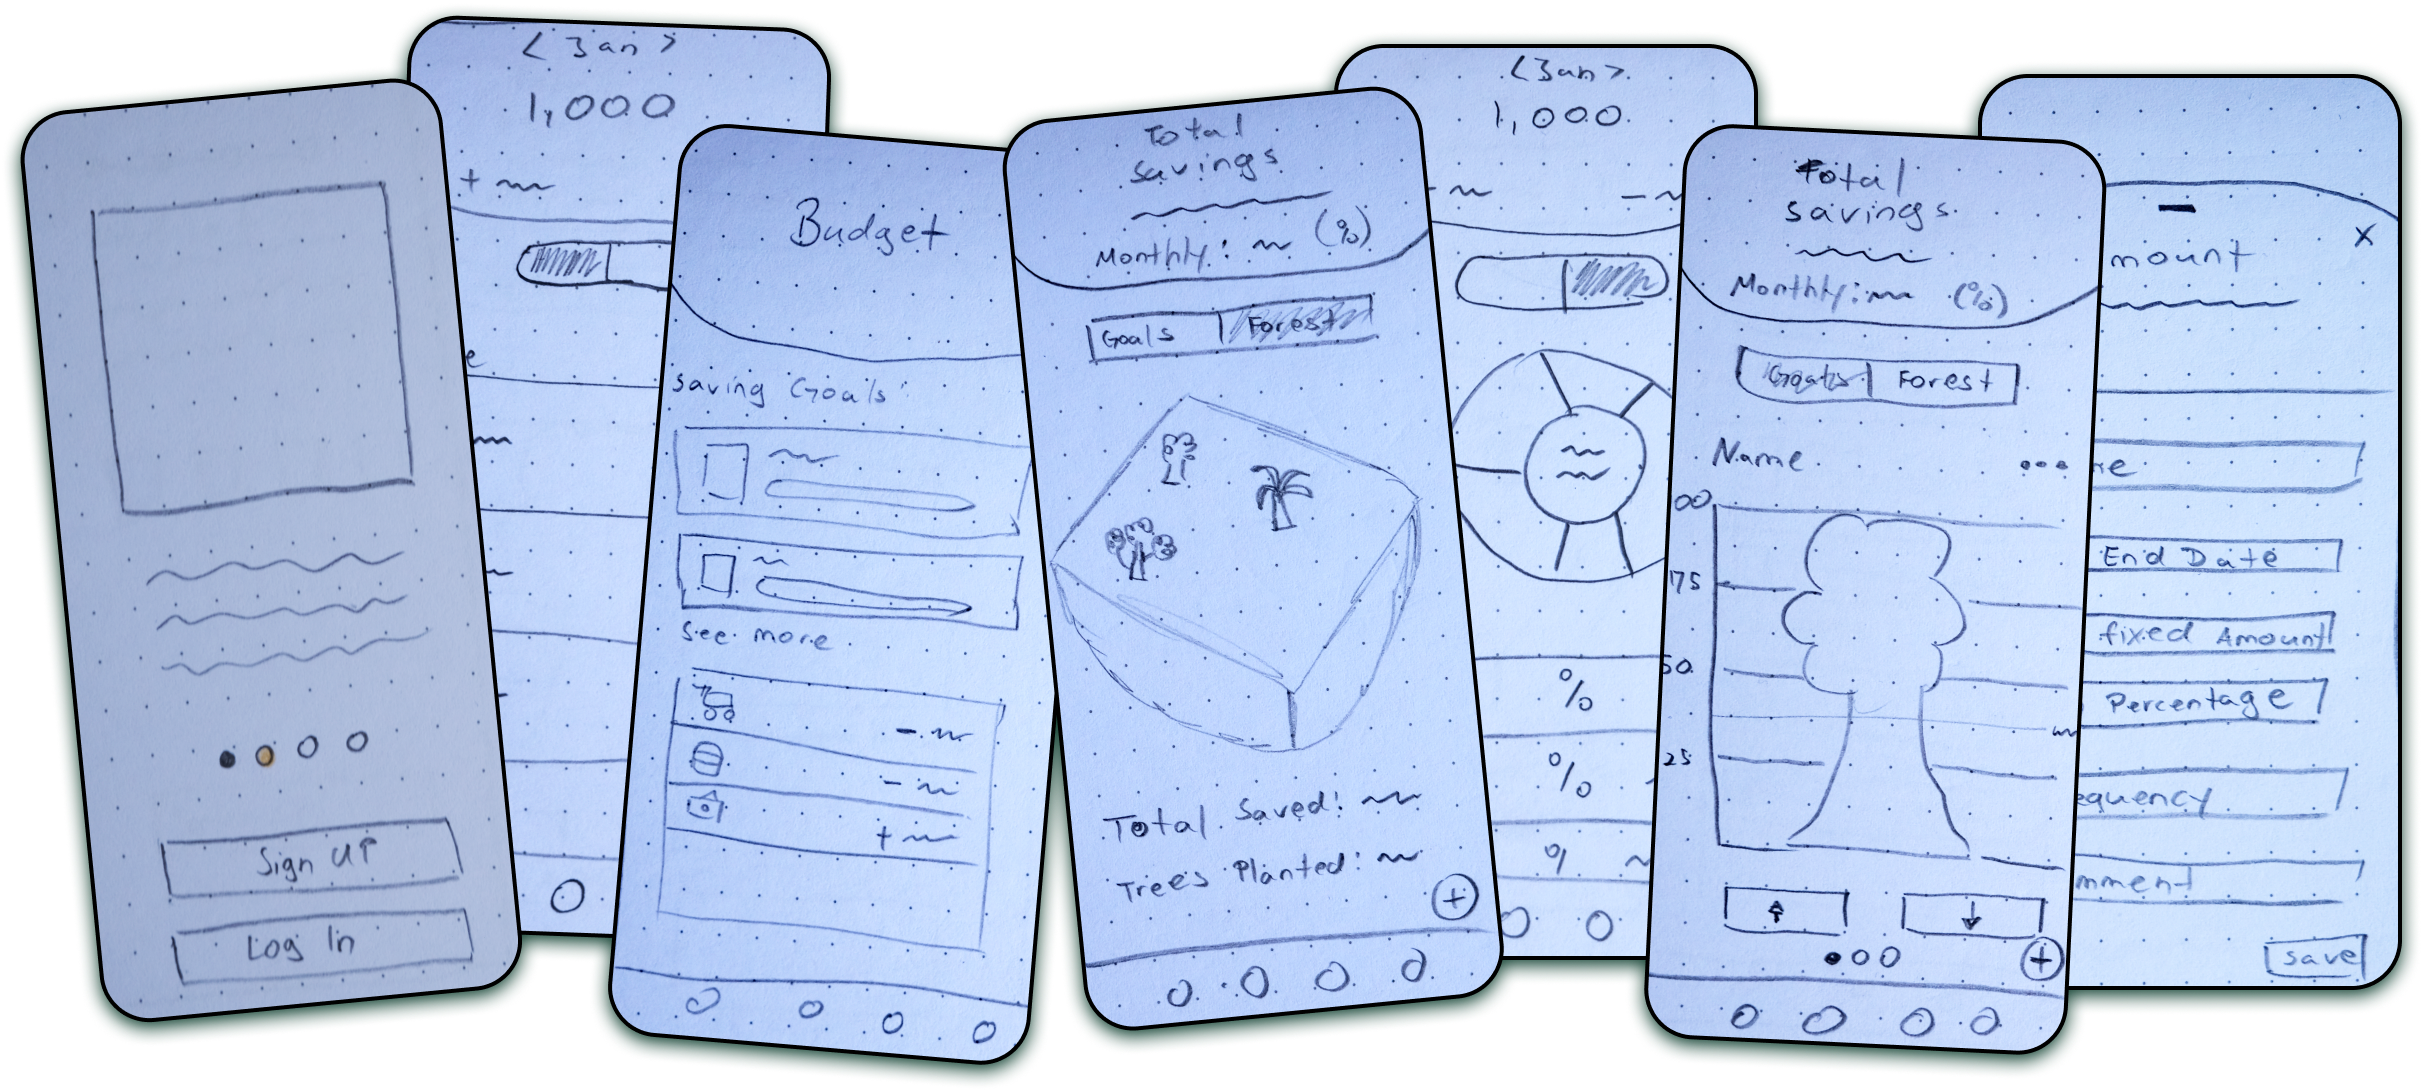 Sign UP
Log In
< Jan >
1,000
+
Budget
Saving Goals
See more
-
-
+
Total
savings
Monthly: (%)
Goals Forest
Total Saved:
Trees Planted:
+
<Jan>
1,000
-
-
%
%
%
Total
savings
Monthly: (%)
Goals Forest
Name
00
75
50
25
+
mount
X
End Date
fixed Amount
Percentage
equency
mment
save